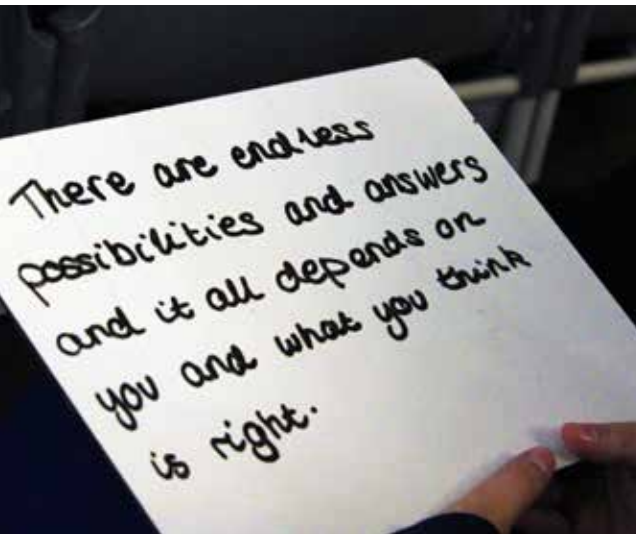 There are endless
possibilities and answers
and it all depends on
you and what you think
is right.